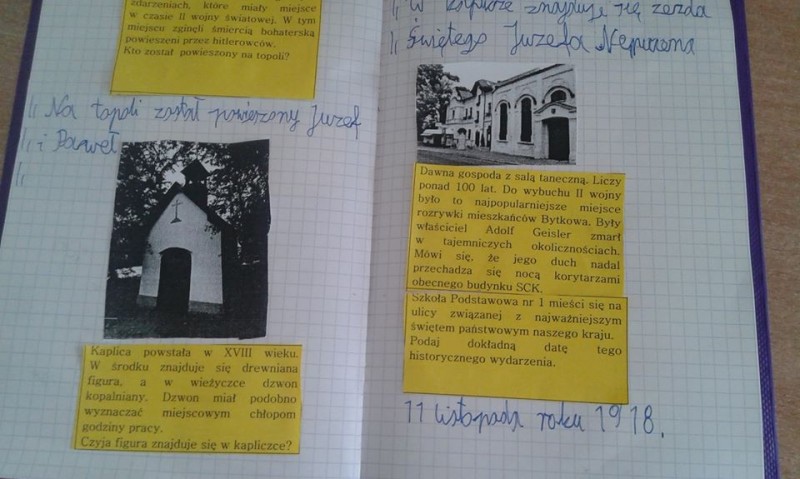 zdarzeniach, które miały miejsce
w czasie II wojny światowej. W tym
miejscu zginęli śmiercią bohaterską
powieszeni przez hitlerowców.
Kto został powieszony na topoli?
Na topoli został powieszony Juzef
i Paweł
Kaplica powstała w XVIII wieku.
W środku znajduje się drewniana
figura, a w wieżyczce dzwon
kopalniany. Dzwon miał podobno
wyznaczać miejscowym chłopom
godziny pracy.
Czyja figura znajduje się w kapliczce?
W kapliczce znajduje się
Świętego Juzefa
Dawna gospoda z salą taneczną. Liczy
ponad 100 lat. Do wybuchu II wojny
było to najpopularniejsze miejsce
rozrywki mieszkańców Bytkowa. Były
właściciel Adolf Geisler zmarł
w tajemniczych okolicznościach.
Mówi się, że jego duch nadal
przechadza się nocą korytarzami
obecnego budynku SCK.
Szkoła Podstawowa nr 1 mieści się na
ulicy związanej z najważniejszym
świętem państwowym naszego kraju.
Podaj dokładną datę tego
historycznego wydarzenia.
11 listopada roku 1918.